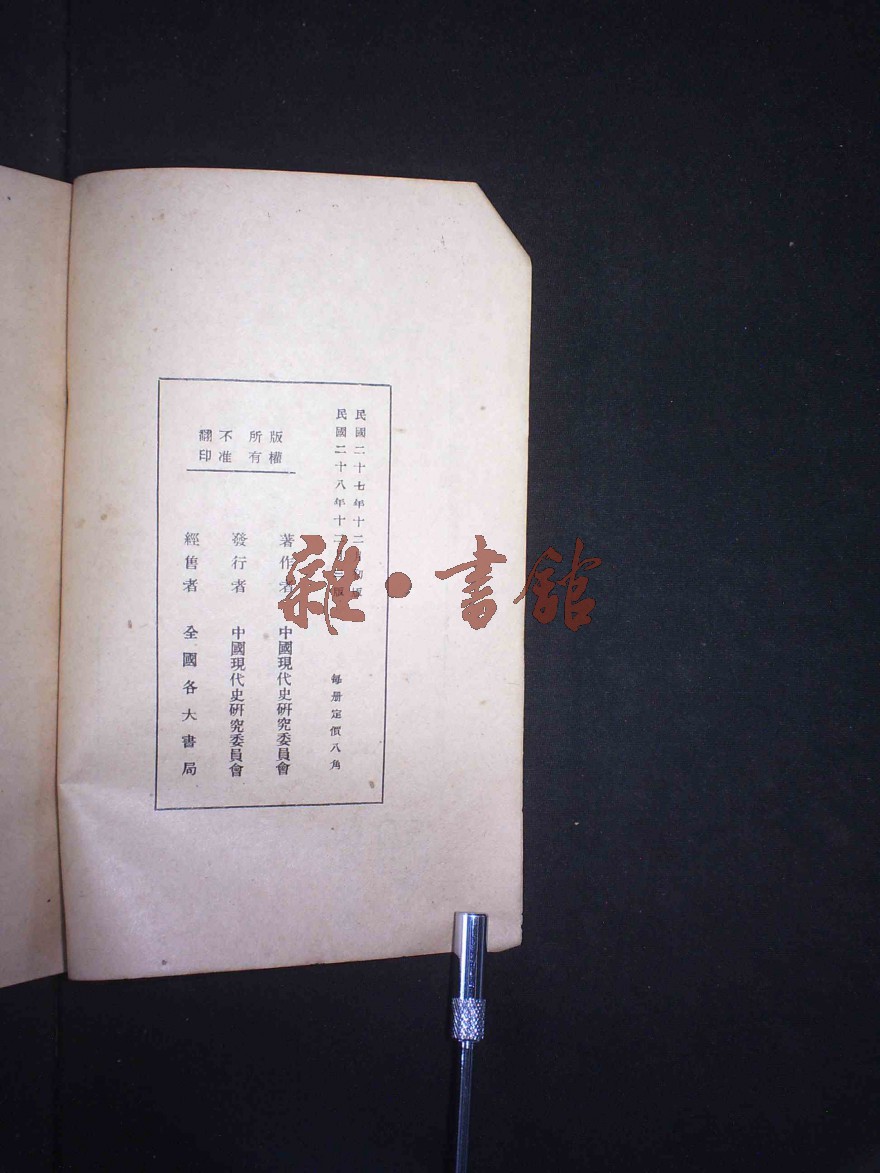 民國二十七年十二月初版
民國二十八年十二月 版
每册定價八角
版權所有
不准翻印
著作者 中國現代史研究委員會
發行者 中國現代史研究委員會
經售者 全國各大書局
雜·書館